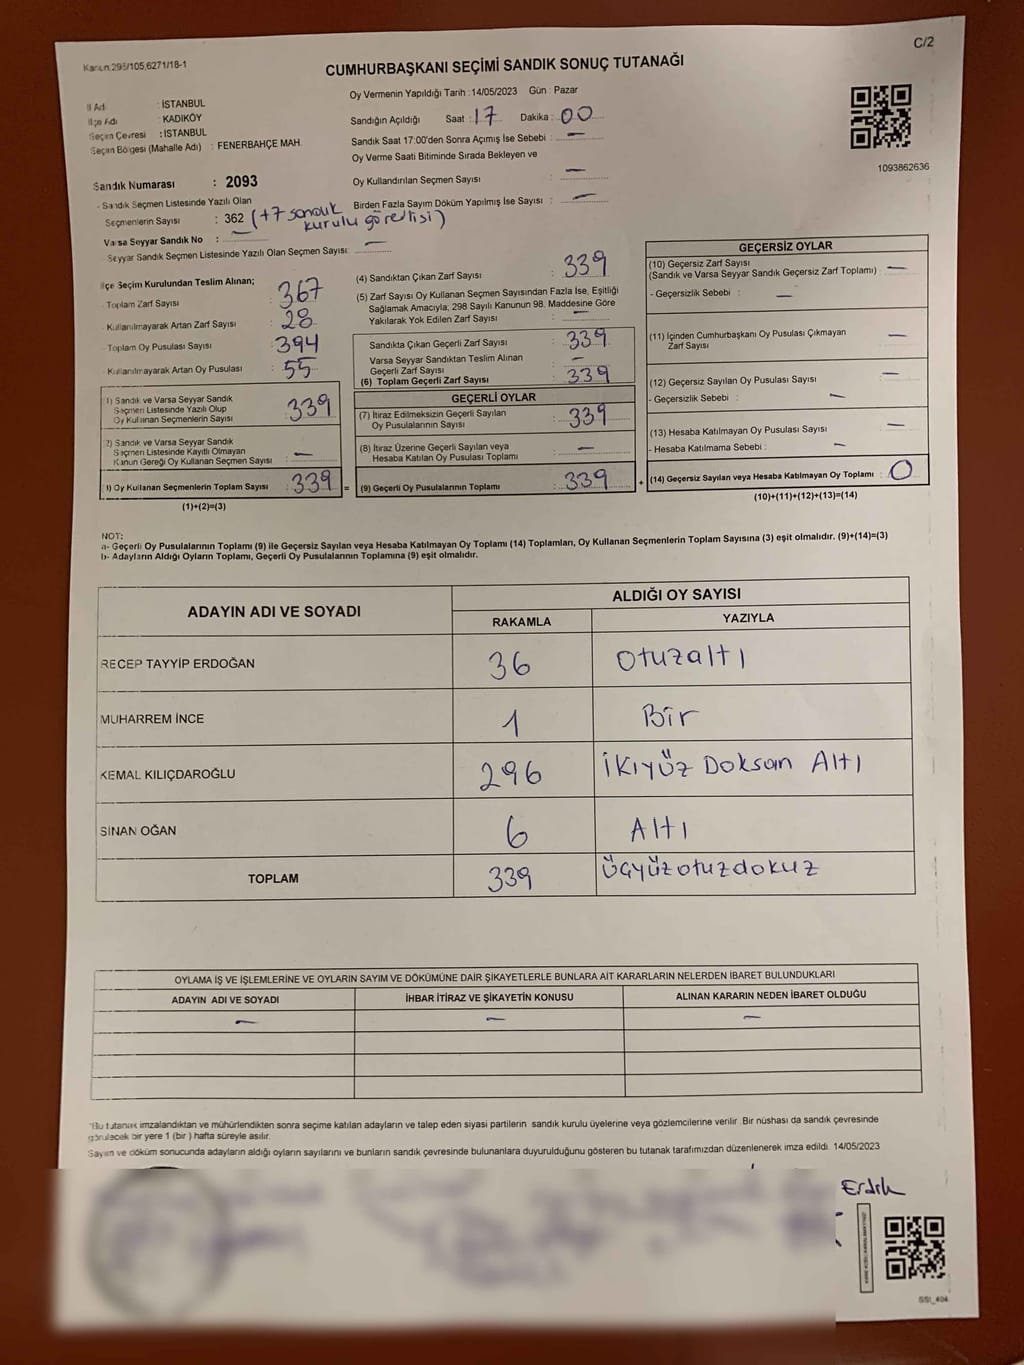 C/2
Kanun.298/105,6271/18-1
CUMHURBAŞKANI SEÇİMİ SANDIK SONUÇ TUTANAĞI
İl Adı : İSTANBUL
İlçe Adı : KADIKÖY
Seçim Çevresi : İSTANBUL
Seçim Bölgesi (Mahalle Adı) : FENERBAHÇE MAH.
Oy Vermenin Yapıldığı Tarih :14/05/2023 Gün : Pazar
Sandığın Açıldığı Saat : 17 Dakika : 00
Sandık Saat 17:00'den Sonra Açımış İse Sebebi : —
Oy Verme Saati Bitiminde Sırada Bekleyen ve
Oy Kullandırılan Seçmen Sayısı : —
Birden Fazla Sayım Döküm Yapılmış İse Sayısı : —
1093862636
Sandık Numarası : 2093
- Sandık Seçmen Listesinde Yazılı Olan
Seçmenlerin Sayısı : 362 (+7 sandık
kurulu görevlisi)
Varsa Seyyar Sandık No : —
- Seyyar Sandık Seçmen Listesinde Yazılı Olan Seçmen Sayısı: —
İlçe Seçim Kurulundan Teslim Alınan;
- Toplam Zarf Sayısı : 367
- Kullanılmayarak Artan Zarf Sayısı : 28
- Toplam Oy Pusulası Sayısı : 394
- Kullanılmayarak Artan Oy Pusulası : 55
1) Sandık ve Varsa Seyyar Sandık
Seçmen Listesinde Yazılı Olup
Oy Kullanan Seçmenlerin Sayısı : 339
2) Sandık ve Varsa Seyyar Sandık
Seçmen Listesinde Kayıtlı Olmayan
Kanun Gereği Oy Kullanan Seçmen Sayısı : —
3) Oy Kullanan Seçmenlerin Toplam Sayısı : 339 =
(1)+(2)=(3)
(4) Sandıktan Çıkan Zarf Sayısı : 339
(5) Zarf Sayısı Oy Kullanan Seçmen Sayısından Fazla İse, Eşitliği
Sağlamak Amacıyla; 298 Sayılı Kanunun 98. Maddesine Göre
Yakılarak Yok Edilen Zarf Sayısı : —
Sandıkta Çıkan Geçerli Zarf Sayısı : 339
Varsa Seyyar Sandıktan Teslim Alınan
Geçerli Zarf Sayısı : —
(6) Toplam Geçerli Zarf Sayısı : 339
GEÇERLİ OYLAR
(7) İtiraz Edilmeksizin Geçerli Sayılan
Oy Pusulalarının Sayısı : 339
(8) İtiraz Üzerine Geçerli Sayılan veya
Hesaba Katılan Oy Pusulası Toplamı : —
(9) Geçerli Oy Pusulalarının Toplamı : 339 +
GEÇERSİZ OYLAR
(10) Geçersiz Zarf Sayısı
(Sandık ve Varsa Seyyar Sandık Geçersiz Zarf Toplamı) : —
- Geçersizlik Sebebi : —
(11) İçinden Cumhurbaşkanı Oy Pusulası Çıkmayan
Zarf Sayısı : —
(12) Geçersiz Sayılan Oy Pusulası Sayısı : —
- Geçersizlik Sebebi : —
(13) Hesaba Katılmayan Oy Pusulası Sayısı : —
- Hesaba Katılmama Sebebi : —
(14) Geçersiz Sayılan veya Hesaba Katılmayan Oy Toplamı : 0
(10)+(11)+(12)+(13)=(14)
NOT:
a- Geçerli Oy Pusulalarının Toplamı (9) ile Geçersiz Sayılan veya Hesaba Katılmayan Oy Toplamı (14) Toplamları, Oy Kullanan Seçmenlerin Toplam Sayısına (3) eşit olmalıdır. (9)+(14)=(3)
b- Adayların Aldığı Oyların Toplamı, Geçerli Oy Pusulalarının Toplamına (9) eşit olmalıdır.
ADAYIN ADI VE SOYADI ALDIĞI OY SAYISI
RAKAMLA YAZIYLA
RECEP TAYYİP ERDOĞAN 36 Otuzaltı
MUHARREM İNCE 1 Bir
KEMAL KILIÇDAROĞLU 296 İkiyüz Doksan Altı
SİNAN OĞAN 6 Altı
TOPLAM 339 üçyüzotuzdokuz
OYLAMA İŞ VE İŞLEMLERİNE VE OYLARIN SAYIM VE DÖKÜMÜNE DAİR ŞİKAYETLERLE BUNLARA AİT KARARLARIN NELERDEN İBARET BULUNDUKLARI
ADAYIN ADI VE SOYADI İHBAR İTİRAZ VE ŞİKAYETİN KONUSU ALINAN KARARIN NEDEN İBARET OLDUĞU
— — —
*Bu tutanak imzalandıktan ve mühürlendikten sonra seçime katılan adayların ve talep eden siyasi partilerin sandık kurulu üyelerine veya gözlemcilerine verilir. Bir nüshası da sandık çevresinde
görülecek bir yere 1 (bir ) hafta süreyle asılır.
Sayım ve döküm sonucunda adayların aldığı oyların sayılarını ve bunların sandık çevresinde bulunanlara duyurulduğunu gösteren bu tutanak tarafımızdan düzenlenerek imza edildi. 14/05/2023
SSI_404